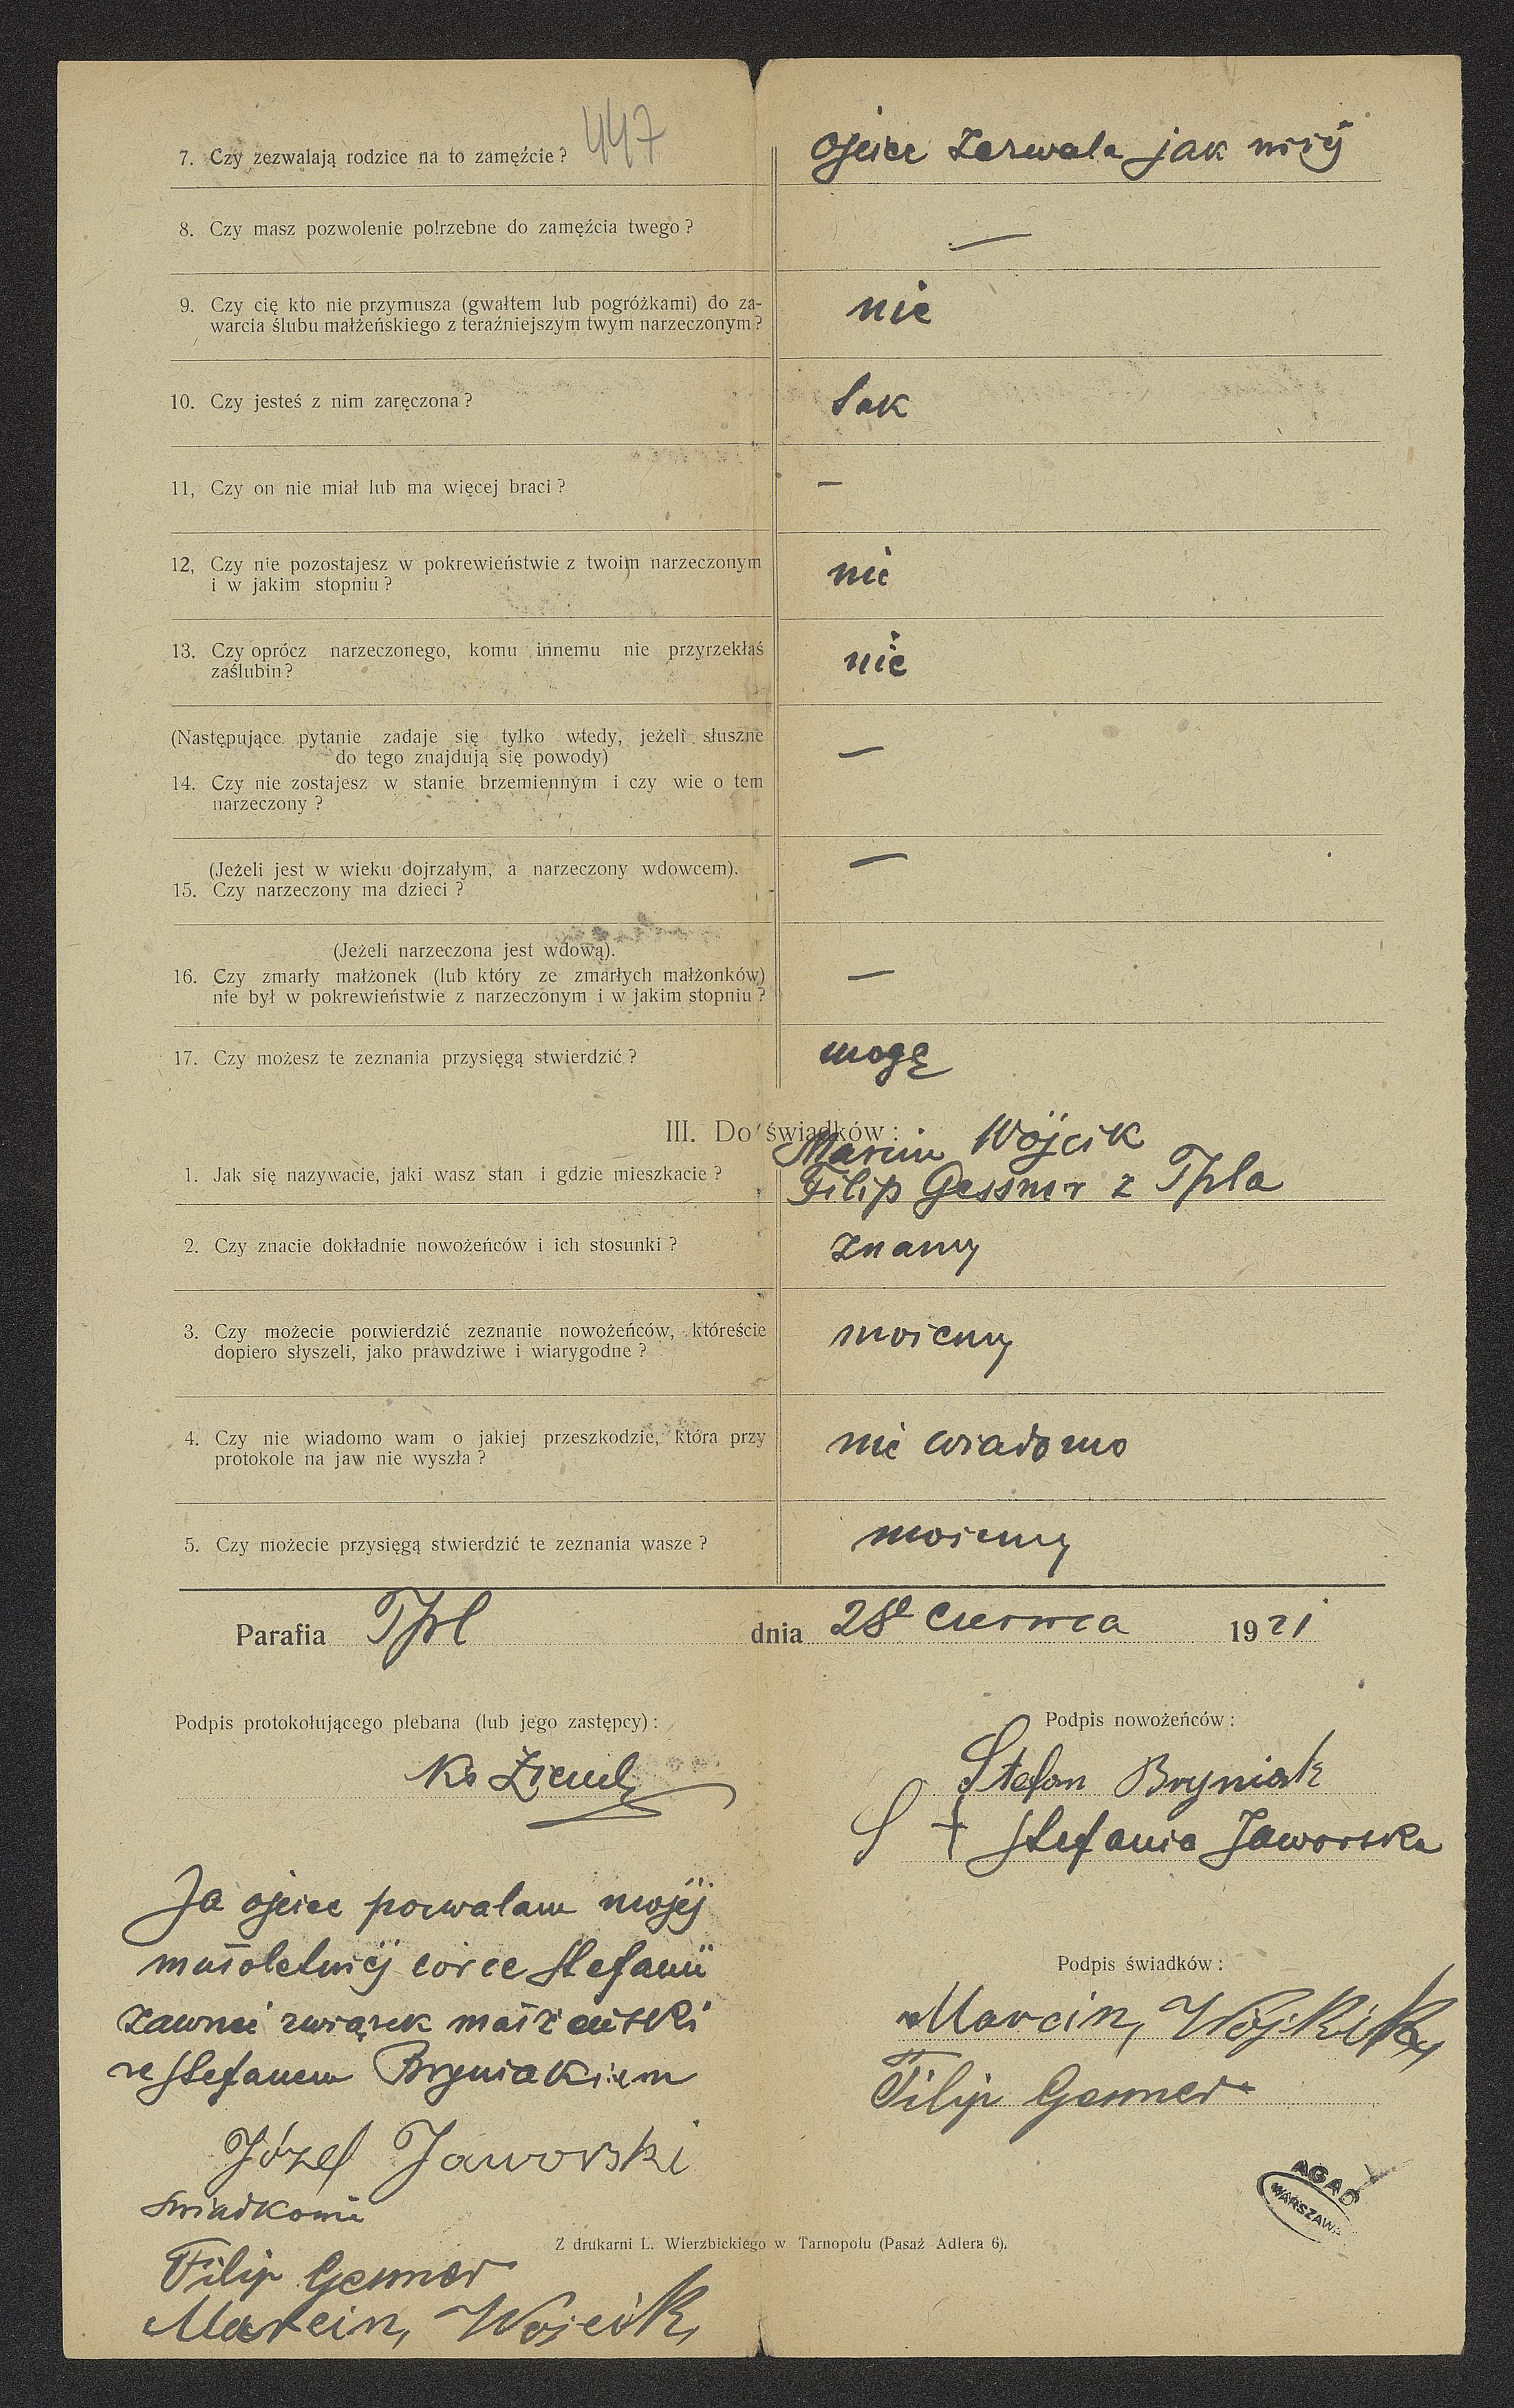 447
7. Czy zezwalają rodzice na to zamęźcie? ojciec zezwala jak niżej
8. Czy masz pozwolenie potrzebne do zamęźcia twego? —
9. Czy cię kto nie przymusza (gwałtem lub pogróżkami) do za-
warcia ślubu małżeńskiego z teraźniejszym twym narzeczonym? nie
10. Czy jesteś z nim zaręczona? tak
11, Czy on nie miał lub ma więcej braci? —
12, Czy nie pozostajesz w pokrewieństwie z twoim narzeczonym
i w jakim stopniu? nie
13. Czy oprócz narzeczonego, komu innemu nie przyrzekłaś
zaślubin? nie
(Następujące pytanie zadaje się tylko wtedy, jeżeli słuszne
do tego znajdują się powody) —
14. Czy nie zostajesz w stanie brzemiennym i czy wie o tem
narzeczony?
(Jeżeli jest w wieku dojrzałym, a narzeczony wdowcem). —
15. Czy narzeczony ma dzieci?
(Jeżeli narzeczona jest wdową).
16. Czy zmarły małżonek (lub który ze zmarłych małżonków) —
nie był w pokrewieństwie z narzeczonym i w jakim stopniu?
17. Czy możesz te zeznania przysięgą stwierdzić? mogę
III. Do świadków:
Marcin Wójcik
1. Jak się nazywacie, jaki wasz stan i gdzie mieszkacie? Filip Gessner z Tpla
2. Czy znacie dokładnie nowożeńców i ich stosunki? znamy
3. Czy możecie potwierdzić zeznanie nowożeńców, któreście
dopiero słyszeli, jako prawdziwe i wiarygodne? możemy
4. Czy nie wiadomo wam o jakiej przeszkodzie, która przy
protokole na jaw nie wyszła? nie wiadomo
5. Czy możecie przysięgą stwierdzić te zeznania wasze? możemy
Parafia Tpl dnia 28 czerwca 1921
Podpis protokołującego plebana (lub jego zastępcy):
Ks
Podpis nowożeńców:
Stefan Bryniak
S † Stefania Jaworska
Ja ojciec pozwalam mojej
małoletniej córce Stefanii
zawrzeć związek małżeński
ze Stefanem Bryniakiem
Józef Jaworski
świadkowie
Filip Gessner
Marcin, Wojcik,
Podpis świadków:
Marcin, Wojcik
Filip Gessner
AGAD
WARSZAWA
Z drukarni L. Wierzbickiego w Tarnopolu (Pasaż Adlera 6).